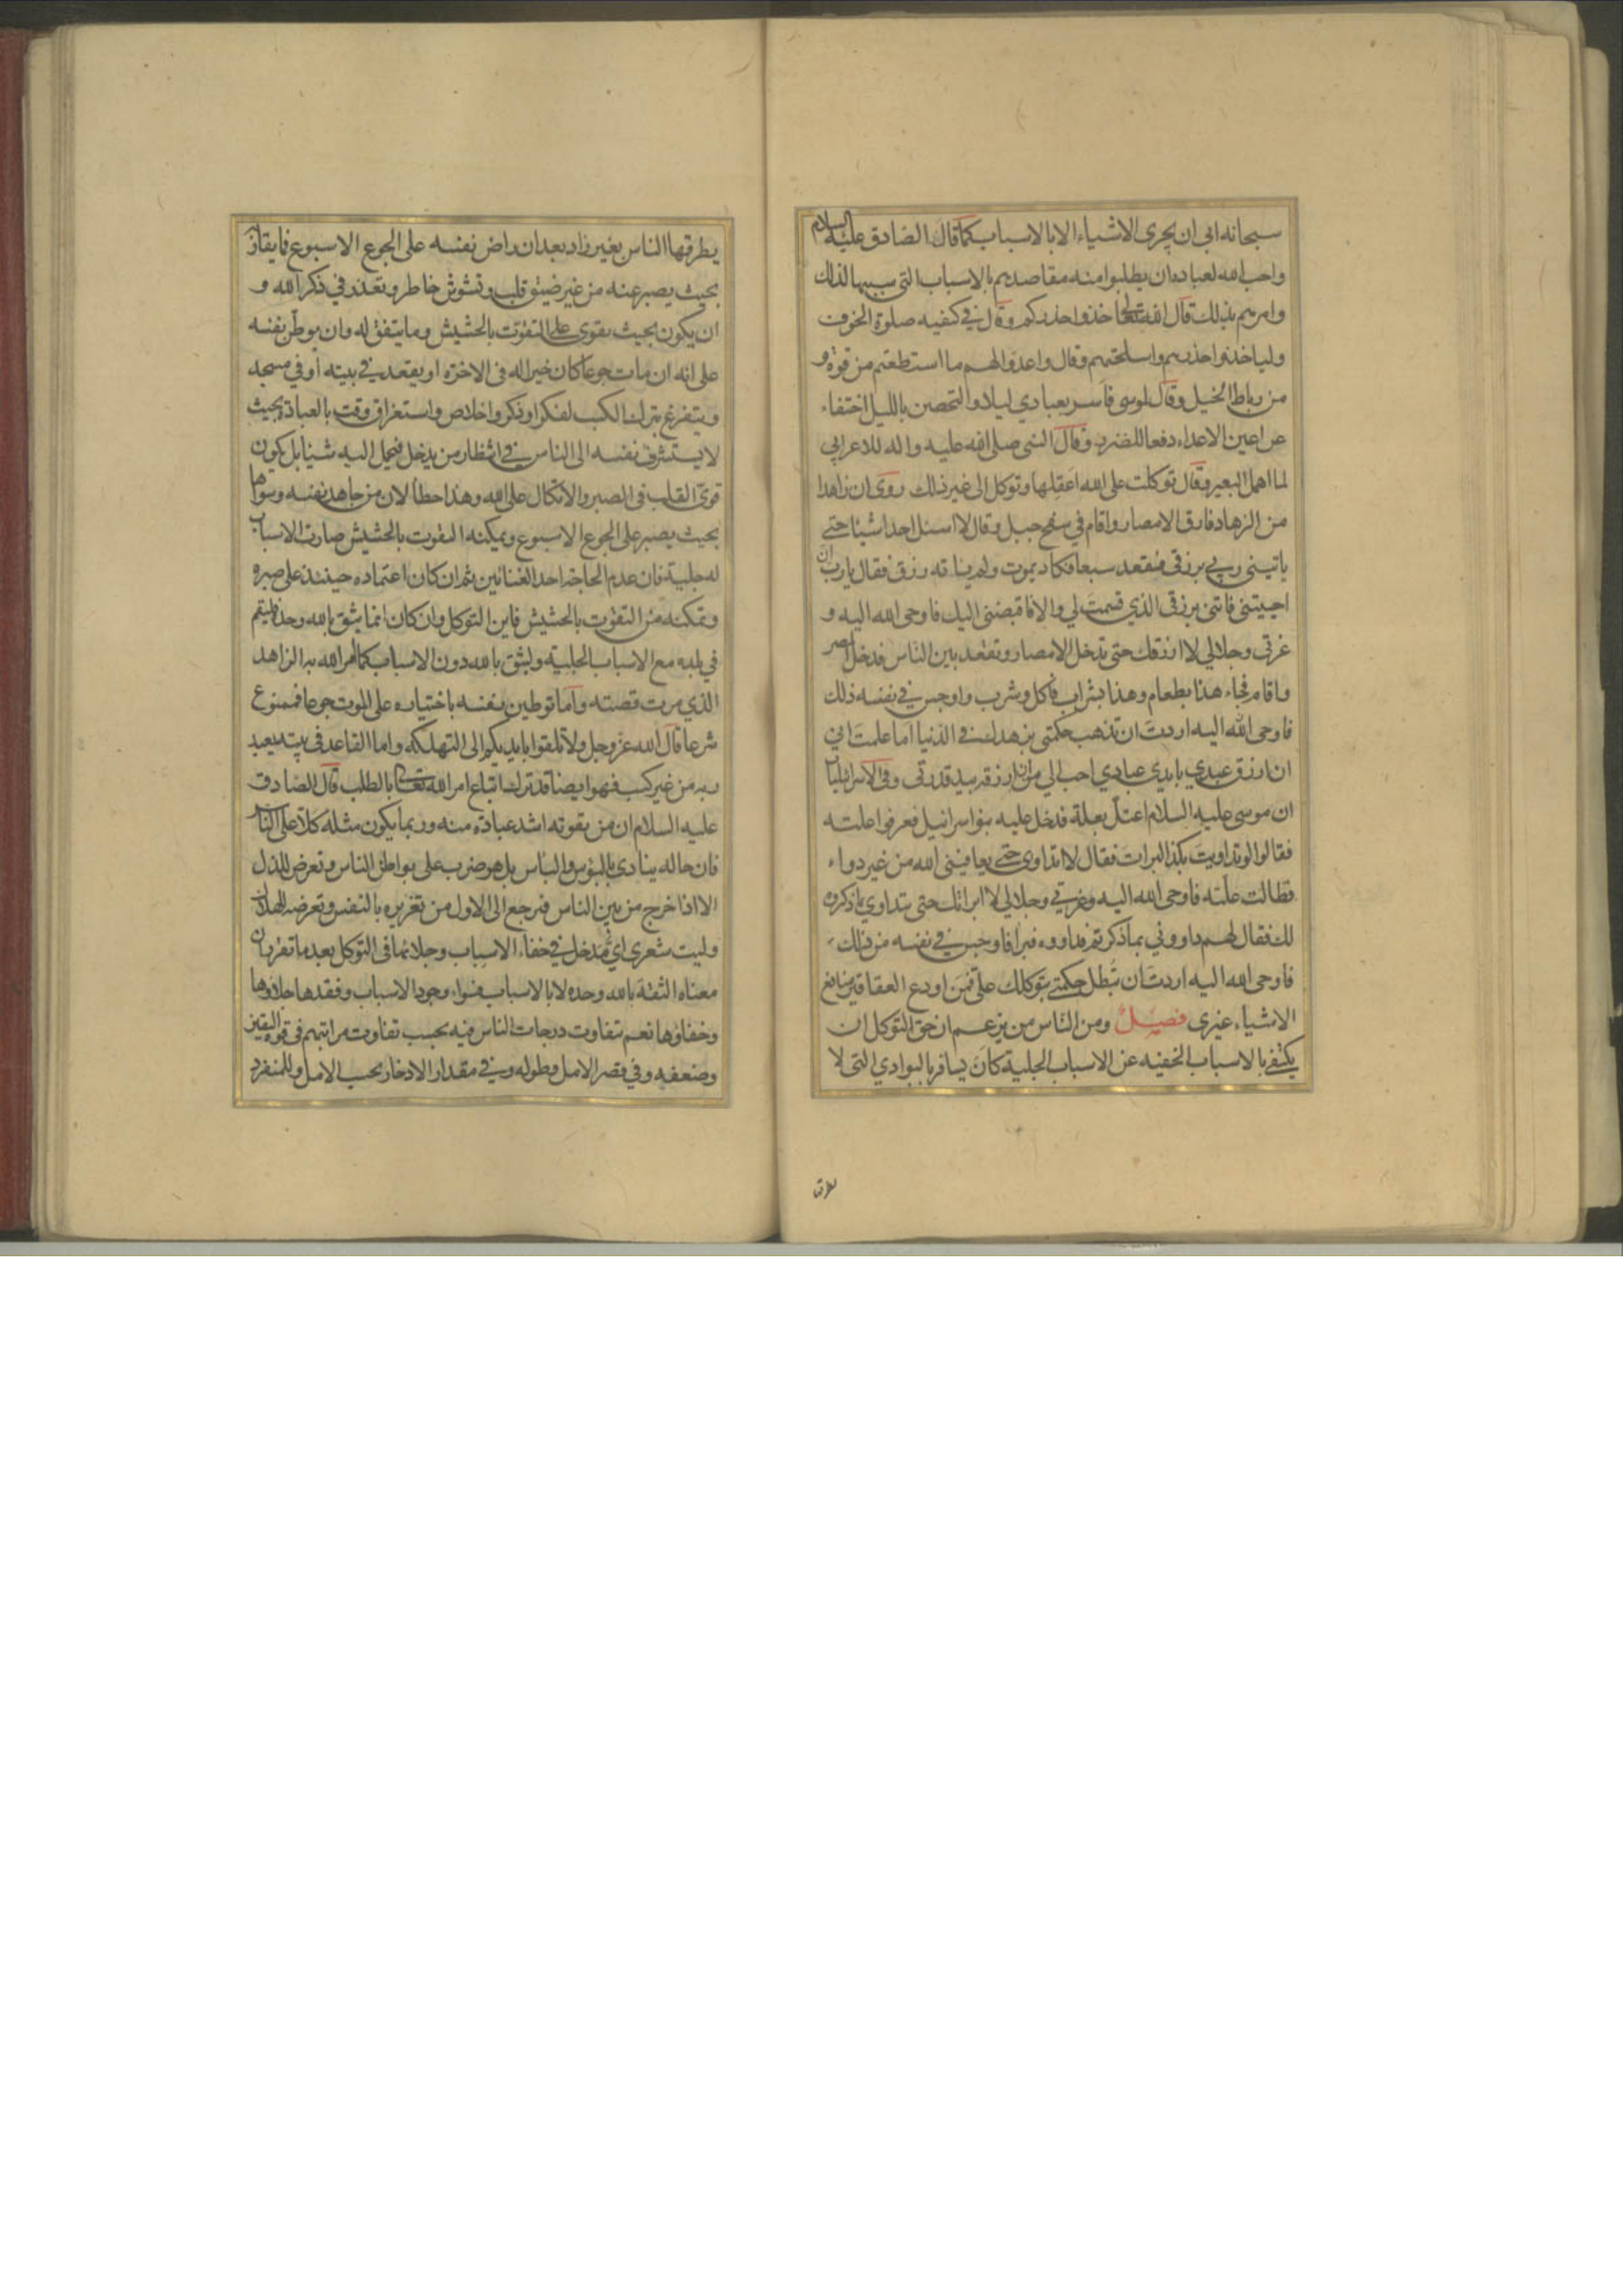 سبحانه ابى ان يجرى الاشياء الا بالاسباب كما قال الصادق عليه السلام
واحب الله لعباده ان يطلبوا منه مقاصدهم بالاسباب التى سببها لذلك
وامرهم بذلك قال الله تعالى خذوا حذركم وقال فى كيفيه صلوة الخوف
ولياخذوا حذرهم واسلحتهم وقال واعدوا لهم ما استطعتم من قوة و
من رباط الخيل وقال لموسى فاسر بعبادي ليلا والتحصين بالليل اختفاء
عن اعين الاعداء دفعا للضرر وقال النبى صلى الله عليه واله للاعرابي
لما اهمل البعير وقال توكلت على الله اعقلها وتوكل الى غير ذلك روى ان زاهدا
من الزهاد فارق الامصار واقام في سفح جبل وقال لا اسئل احدا شيئا حتى
ياتينى ربي برزقى فقعد سبعا فكاد يموت ولم ياته رزق فقال يا رب ان
احييتنى فاتنى برزقى الذي قسمت لي والا فاقبضنى اليك فاوحى الله اليه و
عزتى وجلالي لا ارزقك حتى تدخل الامصار وتقعد بين الناس فدخل المصر
واقام فجاء هذا بطعام وهذا بشراب فاكل وشرب واوجس في نفسه ذلك
فاوحى الله اليه اردت ان تذهب حكمتى بزهدك في الدنيا اما علمت اني
ان ارزق عبدي بايدي عبادي احب الي من ان ارزقه بيد قدرتى وفى الاسرائيليات
ان موسى عليه السلام اعتل بعلة فدخل عليه بنو اسرائيل فعرفوا علته
فقالوا لو تداويت بكذا لبرات فقال لا اتداوى حتى يعافينى الله من غير دواء
فطالت علته فاوحى الله اليه وعزتي وجلالي لا ابراتك حتى تتداوي بما ذكروه
لك فقال لهم داووني بما ذكرتم فداووه فبرا فاوجس في نفسه من ذلك
فاوحى الله اليه اردت ان تبطل حكمتى بتوكلك على فمن اودع العقاقير منافع
الاشياء غيرى فصل ومن الناس من يزعم ان حق التوكل ان
يكتفى بالاسباب الخفيه عن الاسباب الجلية كان يسافر بالبوادي التى لا
يطرقها الناس بغير زاد بعد ان راض نفسه على الجوع الاسبوع فما يقاربه
بحيث يصبر عنه من غير ضيق قلب وتشوش خاطر وتعذر في ذكر الله و
ان يكون بحيث يقوى على التقوت بالحشيش وما يتفق له وان يوطن نفسه
على انه ان مات جوعا كان خيرا له فى الاخرة او يقعد في بيته او في مسجد
ويتفرغ بترك الكسب لفكر او ذكر واخلاص واستغراق وقت بالعبادة بحيث
لا يستشرف نفسه الى الناس في انتظار من يدخل فيحمل اليه شيئا بل يكون
قوي القلب فى الصبر والاتكال على الله وهذا خطأ لان من جاهد نفسه وسواها
بحيث يصبر على الجوع الاسبوع ويمكنه التقوت بالحشيش صارت الاسباب
له جلية فان عدم الحاجة احد الغنائين ثم ان كان اعتماده حينئذ على صبره
وتمكنه من التقوت بالحشيش فاين التوكل وان كان انما يثق بالله وحده فليقم
في بلده مع الاسباب الجلية وليثق بالله دون الاسباب كما امر الله به الزاهد
الذي مرت قصته واما توطين نفسه باختياره على الموت جوعا فممنوع
شرعا قال الله عز وجل ولا تلقوا بايديكم الى التهلكة واما القاعد فى بيته يعبد
ربه من غير كسب فهو ايضا قد ترك اتباع امر الله تعالى بالطلب قال الصادق
عليه السلام ان من يقوته اشد عبادة منه وربما يكون مثله كلا على الناس
فان حاله ينادي بالبؤس والياس بل هو ضرب على بواطن الناس وتعرض للذل
الا اذا خرج من بين الناس فيرجع الى الاول من تغريره بالنفس وتعرضه للهلاك
وليت شعرى اي مدخل في خفاء الاسباب وجلائها فى التوكل بعد ما تقرر ان
معناه الثقة بالله وحده لا بالاسباب فسواء وجود الاسباب وفقدها جلاؤها
وخفاؤها نعم تتفاوت درجات الناس فيه بحسب تفاوت مراتبهم فى قوة اليقين
وضعفه وفي قصر الامل وطوله وفي مقدار الادخار بحسب الامل وللمنفرد